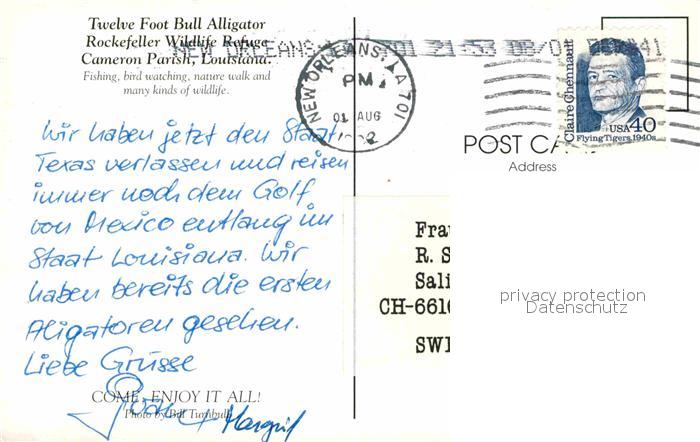 Twelve Foot Bull Alligator
Rockefeller Wildlife Refuge
Cameron Parish, Louisiana.
Fishing, bird watching, nature walk and
many kinds of wildlife.
NEW ORLEANS, LA 701
PM
01 AUG
Claire Chennault
USA 40
Flying Tigers 1940s
POST CA
Address
Wir haben jetzt den Staat
Texas verlassen und reisen
immer noch dem Golf
von Mexico entlang im
Staat Louisiana. Wir
haben bereits die ersten
Aligatoren gesehen.
Liebe Grüsse
Margrit
COME, ENJOY IT ALL!
Photo by Bill Turnbull
Fra
R. S
Sali
CH-6616
SWI
privacy protection
Datenschutz